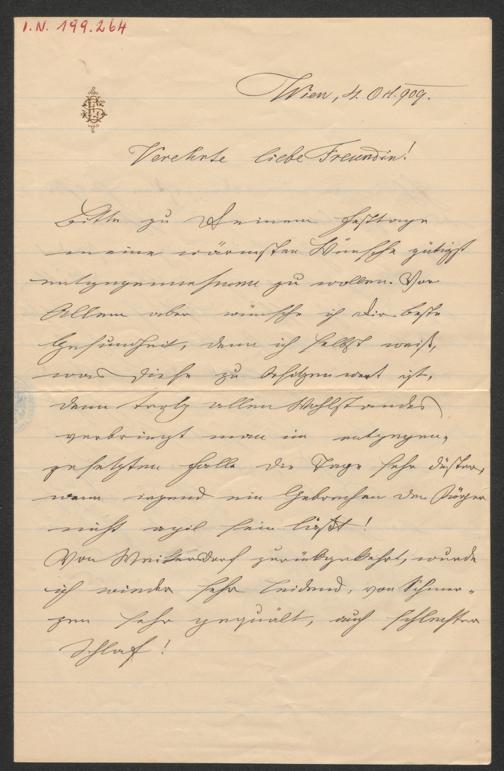 I.N. 199.264
Wien, 4. Okt. 909.
Verehrte liebe Freundin!
Bitte zu Deinem Festtage
meine wärmsten Wünsche gütigst
entgegennehmen zu wollen. Vor
Allem aber wünsche ich Dir beste
Gesundheit, denn ich selbst weiß,
was diese zu schätzen wert ist,
denn trotz allen Wohlstandes
verbringt man im entgegen-
gesetzten Falle die Tage sehr düster,
wenn irgend ein Gebrechen den Körper
nicht agil sein läßt!
Von Weikersdorf zurückgekehrt, wurde
ich wieder sehr leidend, von Schmer-
zen sehr gequält, auch schlechter
Schlaf!